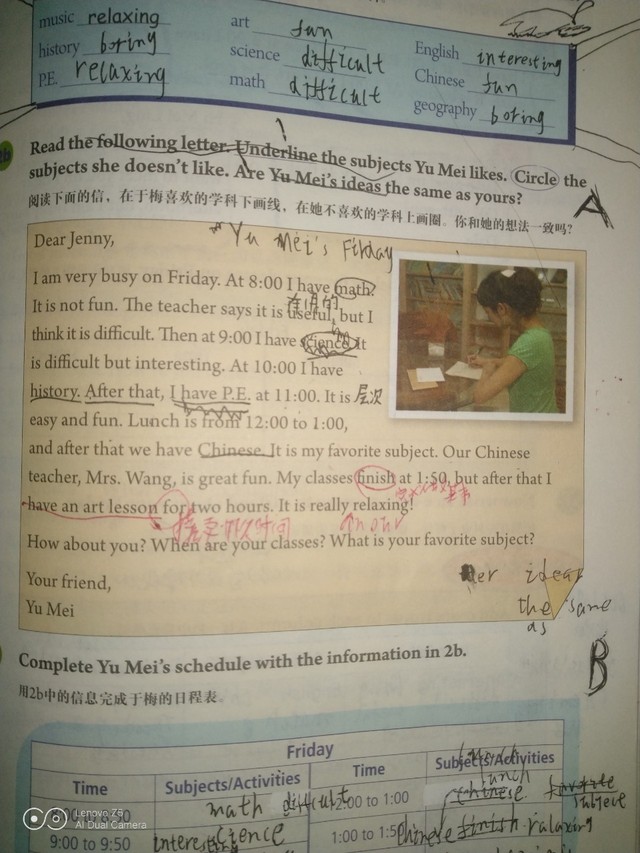 music relaxing
art fun
history boring
science difficult
English interesting
P.E. relaxing
math difficult
Chinese fun
geography boring
Read the following letter. Underline the subjects Yu Mei likes. Circle the
subjects she doesn't like. Are Yu Mei's ideas the same as yours?
阅读下面的信，在于梅喜欢的学科下画线，在她不喜欢的学科上画圈。你和她的想法一致吗?
A
Dear Jenny,
Yu Mei's Firday
I am very busy on Friday. At 8:00 I have math.
It is not fun. The teacher says it is useful, but I
有用的
think it is difficult. Then at 9:00 I have science. It
is difficult but interesting. At 10:00 I have
history. After that, I have P.E. at 11:00. It is
层次
easy and fun. Lunch is from 12:00 to 1:00,
and after that we have Chinese. It is my favorite subject. Our Chinese
teacher, Mrs. Wang, is great fun. My classes finish at 1:50, but after that I
have an art lesson for two hours. It is really relaxing!
How about you? When are your classes? What is your favorite subject?
Your friend,
Yu Mei
the same
as
Complete Yu Mei's schedule with the information in 2b.
B
用2b中的信息完成于梅的日程表。
Friday
Time
Subjects/Activities
Time
Subjects/Activities
math difficult
12:00 to 1:00
lunch
9:00 to 9:50
1:00 to 1:50
chinese